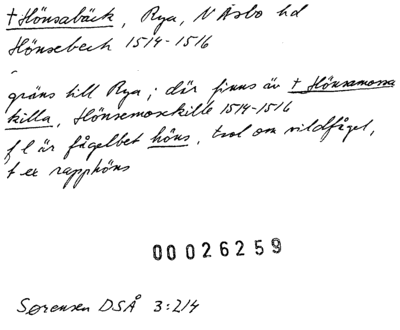 † Hönsabäck, Rya, N Åsbo hd
Hönsebech 1514-1516
gräns till Rya; där finns äv † Hönsamossa
killa, Hönsemosekille 1514-1516
f l är fågelbet höns, trol om vildfågel,
t ex rapphöns
00026259
Sørensen DSÅ 3:214